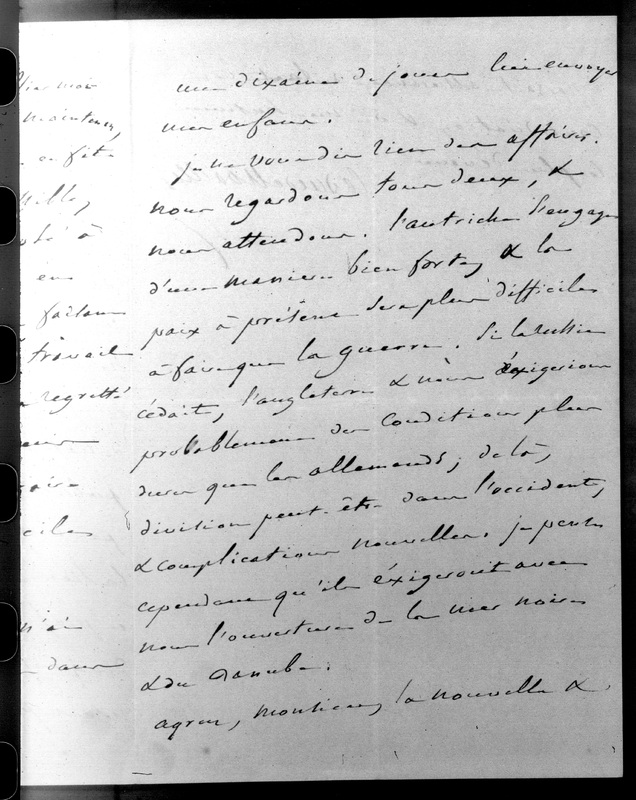 hier moi
maintenu,
en fit
à
en
faisons
travail
regretté
n'ai
dans
une dixaine de jours lui envoyer
mes enfans.
je ne vous dis rien des affaires.
nous regardons tous deux, &
nous attendons. l'autriche s'engage
d'une maniere bien forte, & la
paix à présent sera plus difficile
à faire que la guerre. Si la Russie
cédait, l'angleterre & nous éxigerions
probablement des conditions plus
dures que les allemands; de là,
division peut-être dans l'occident,
& complications nouvelles. je pense
cependant qu'ils éxigeront avec
nous l'ouverture de la mer noire
& du Danube.
agréez, monsieur, la nouvelle &